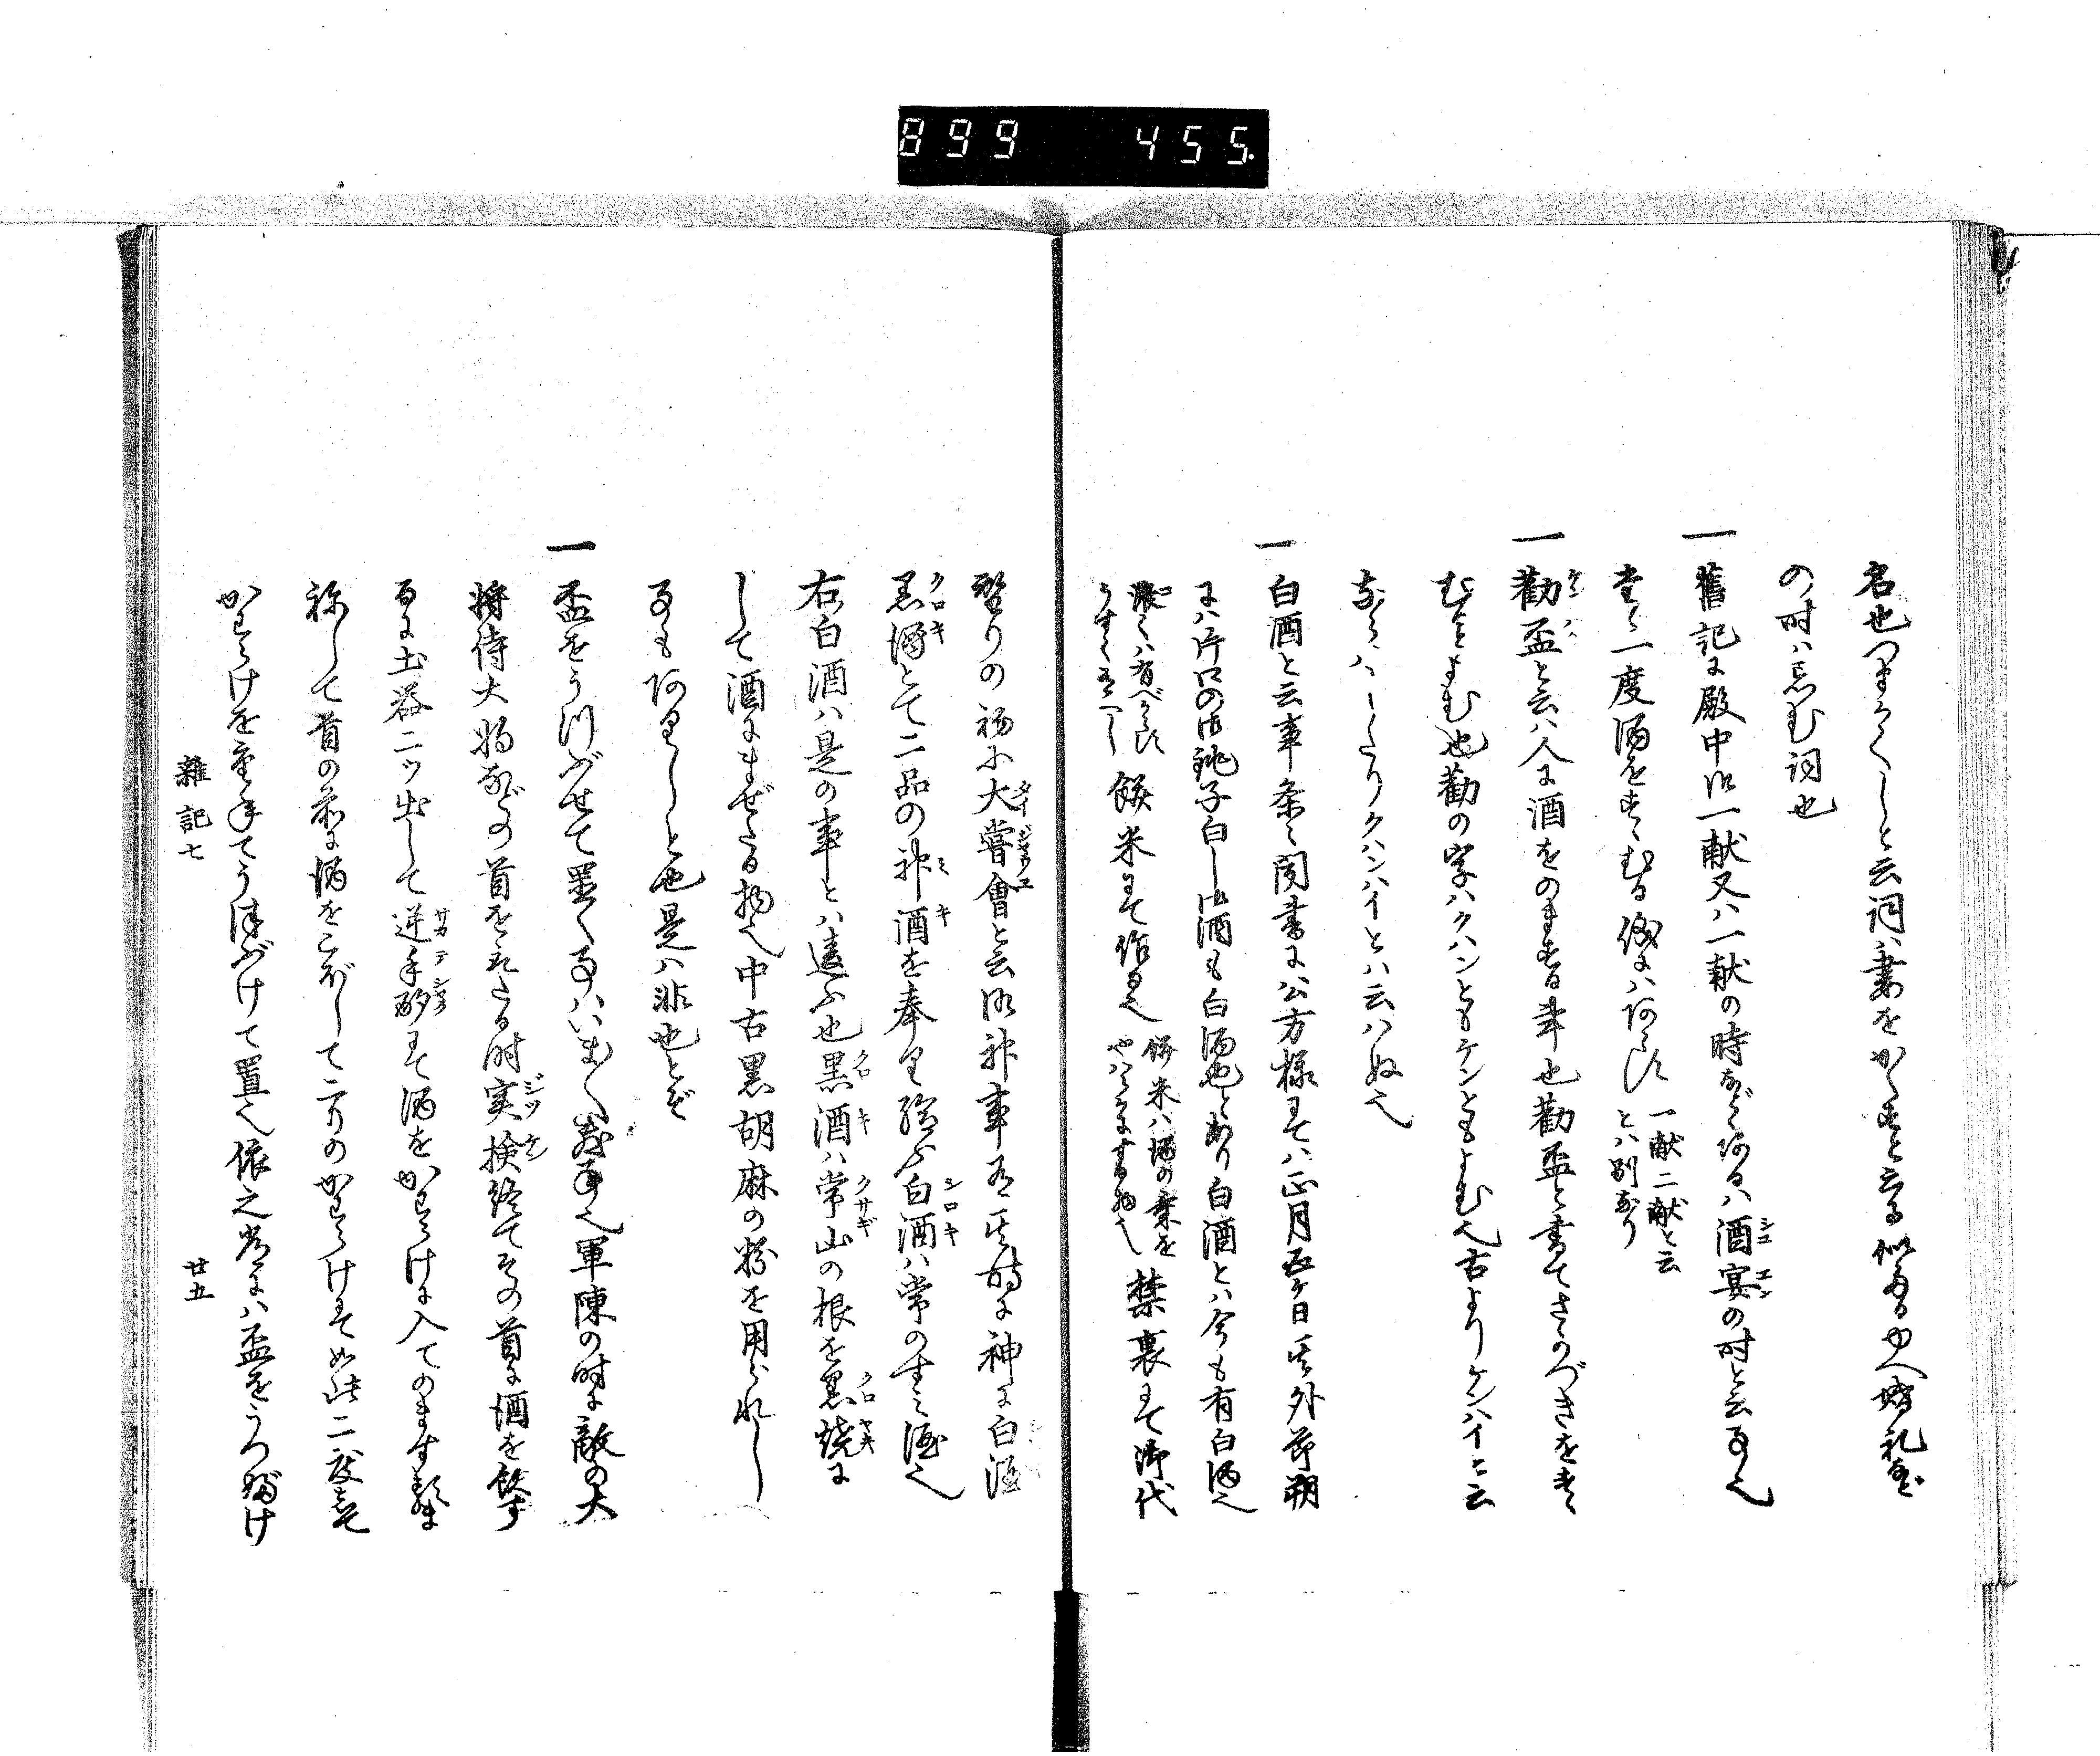 899 455
名也つまかくしと云詞ハ妻をかくすと云る似たるゆへ婚礼など
の時ハ忌む詞也
一舊記に殿中御一献又ハ一献の時などゝあるハ酒宴の時と云事也
たゝ一度酒をすゝむる儀にハあらず
一献二献と云
とハ別なり
一勧盃と云ハ人に酒をのまする事也勧盃と書てさかづきをすゝ
むとよむ也勧の字ハクハンともケンともよむ也古よりケンハイと云
ならハしたりクハンハイとハ云ハぬ也
一白酒と云事条々聞書に公方様にてハ正月五ケ日其外節朔
にハ片口の御銚子白し御酒も白酒也とあり白酒とハ今も有白酒也
濃くハ有べからず
うすく有べし
餅米にて作る也
餅米ハ
やハらかにする物也
禁裏にて御代
替りの初に大嘗會と云御神事有其時に神に白酒
黒酒とて二品の神酒を奉り給ふ白酒ハ常のすミ酒也
右白酒ハ是の事とハ違ふ也黒酒ハ常山の根を黒焼に
して酒にまぜたる物也中古黒胡麻の粉を用られし
事もありしと也是ハ非也とぞ
一盃をうつぶせて置く事ハいまハしき事也軍陳の時に敵の大
将侍大将などの首をとりたる時実検終てその首に酒を飲す
るに土器二ッ出して逆手酌にて酒をかわらけに入てのます
して首の前に酒をこぼして一方のかわらけにて如此二度
かわらけを重ねてうつぶけて置也依之常にハ盃をうつぶけ
雜記七
廿五